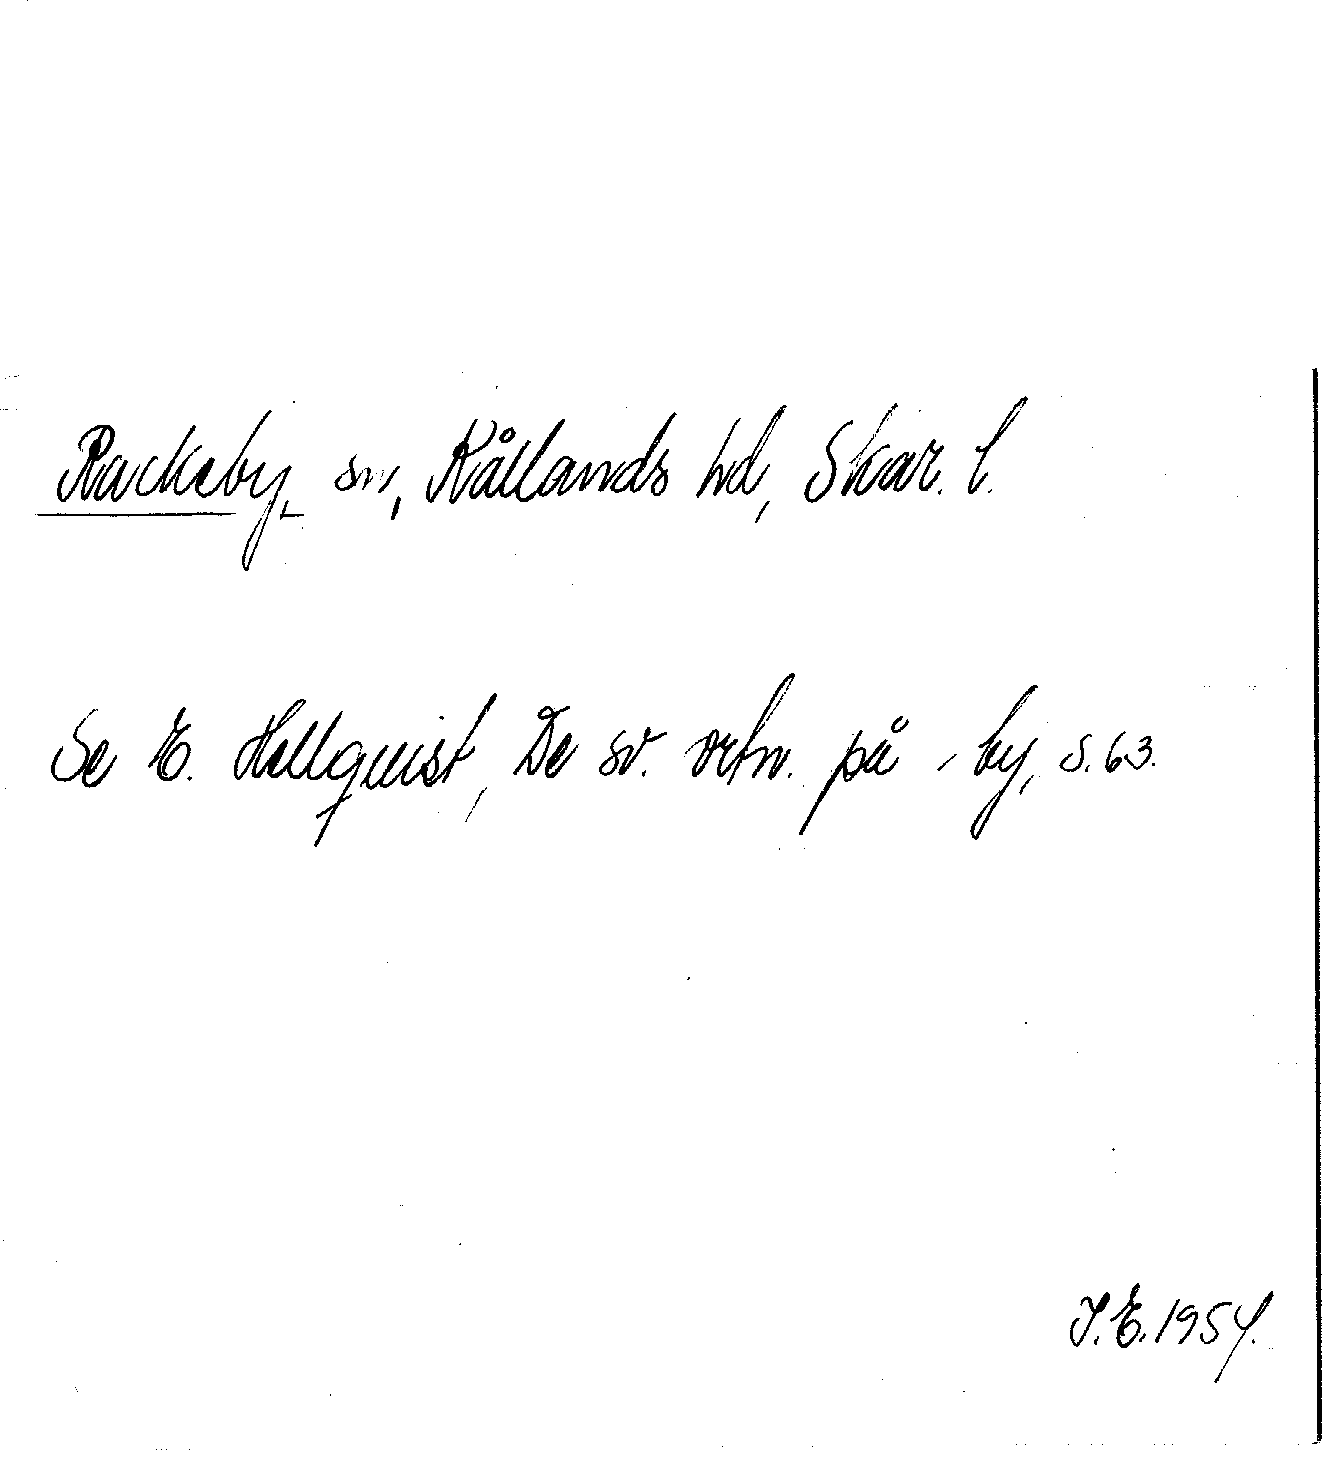 Rackeby, sn, Kållands hd, Skar. l.
Se E. Hellquist, De sv. ortn. på -by, s. 63.
I. E. 1954.